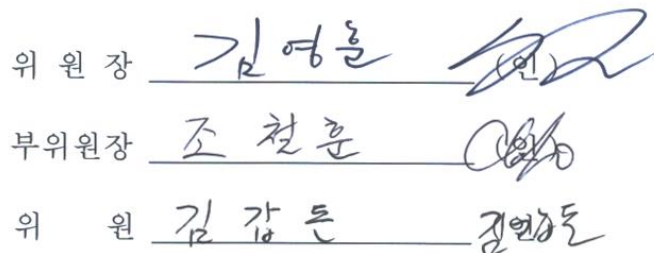 위 원 장 김영훈 (인)
부위원장 조철훈 (인)
위 원 김갑돈 (인)